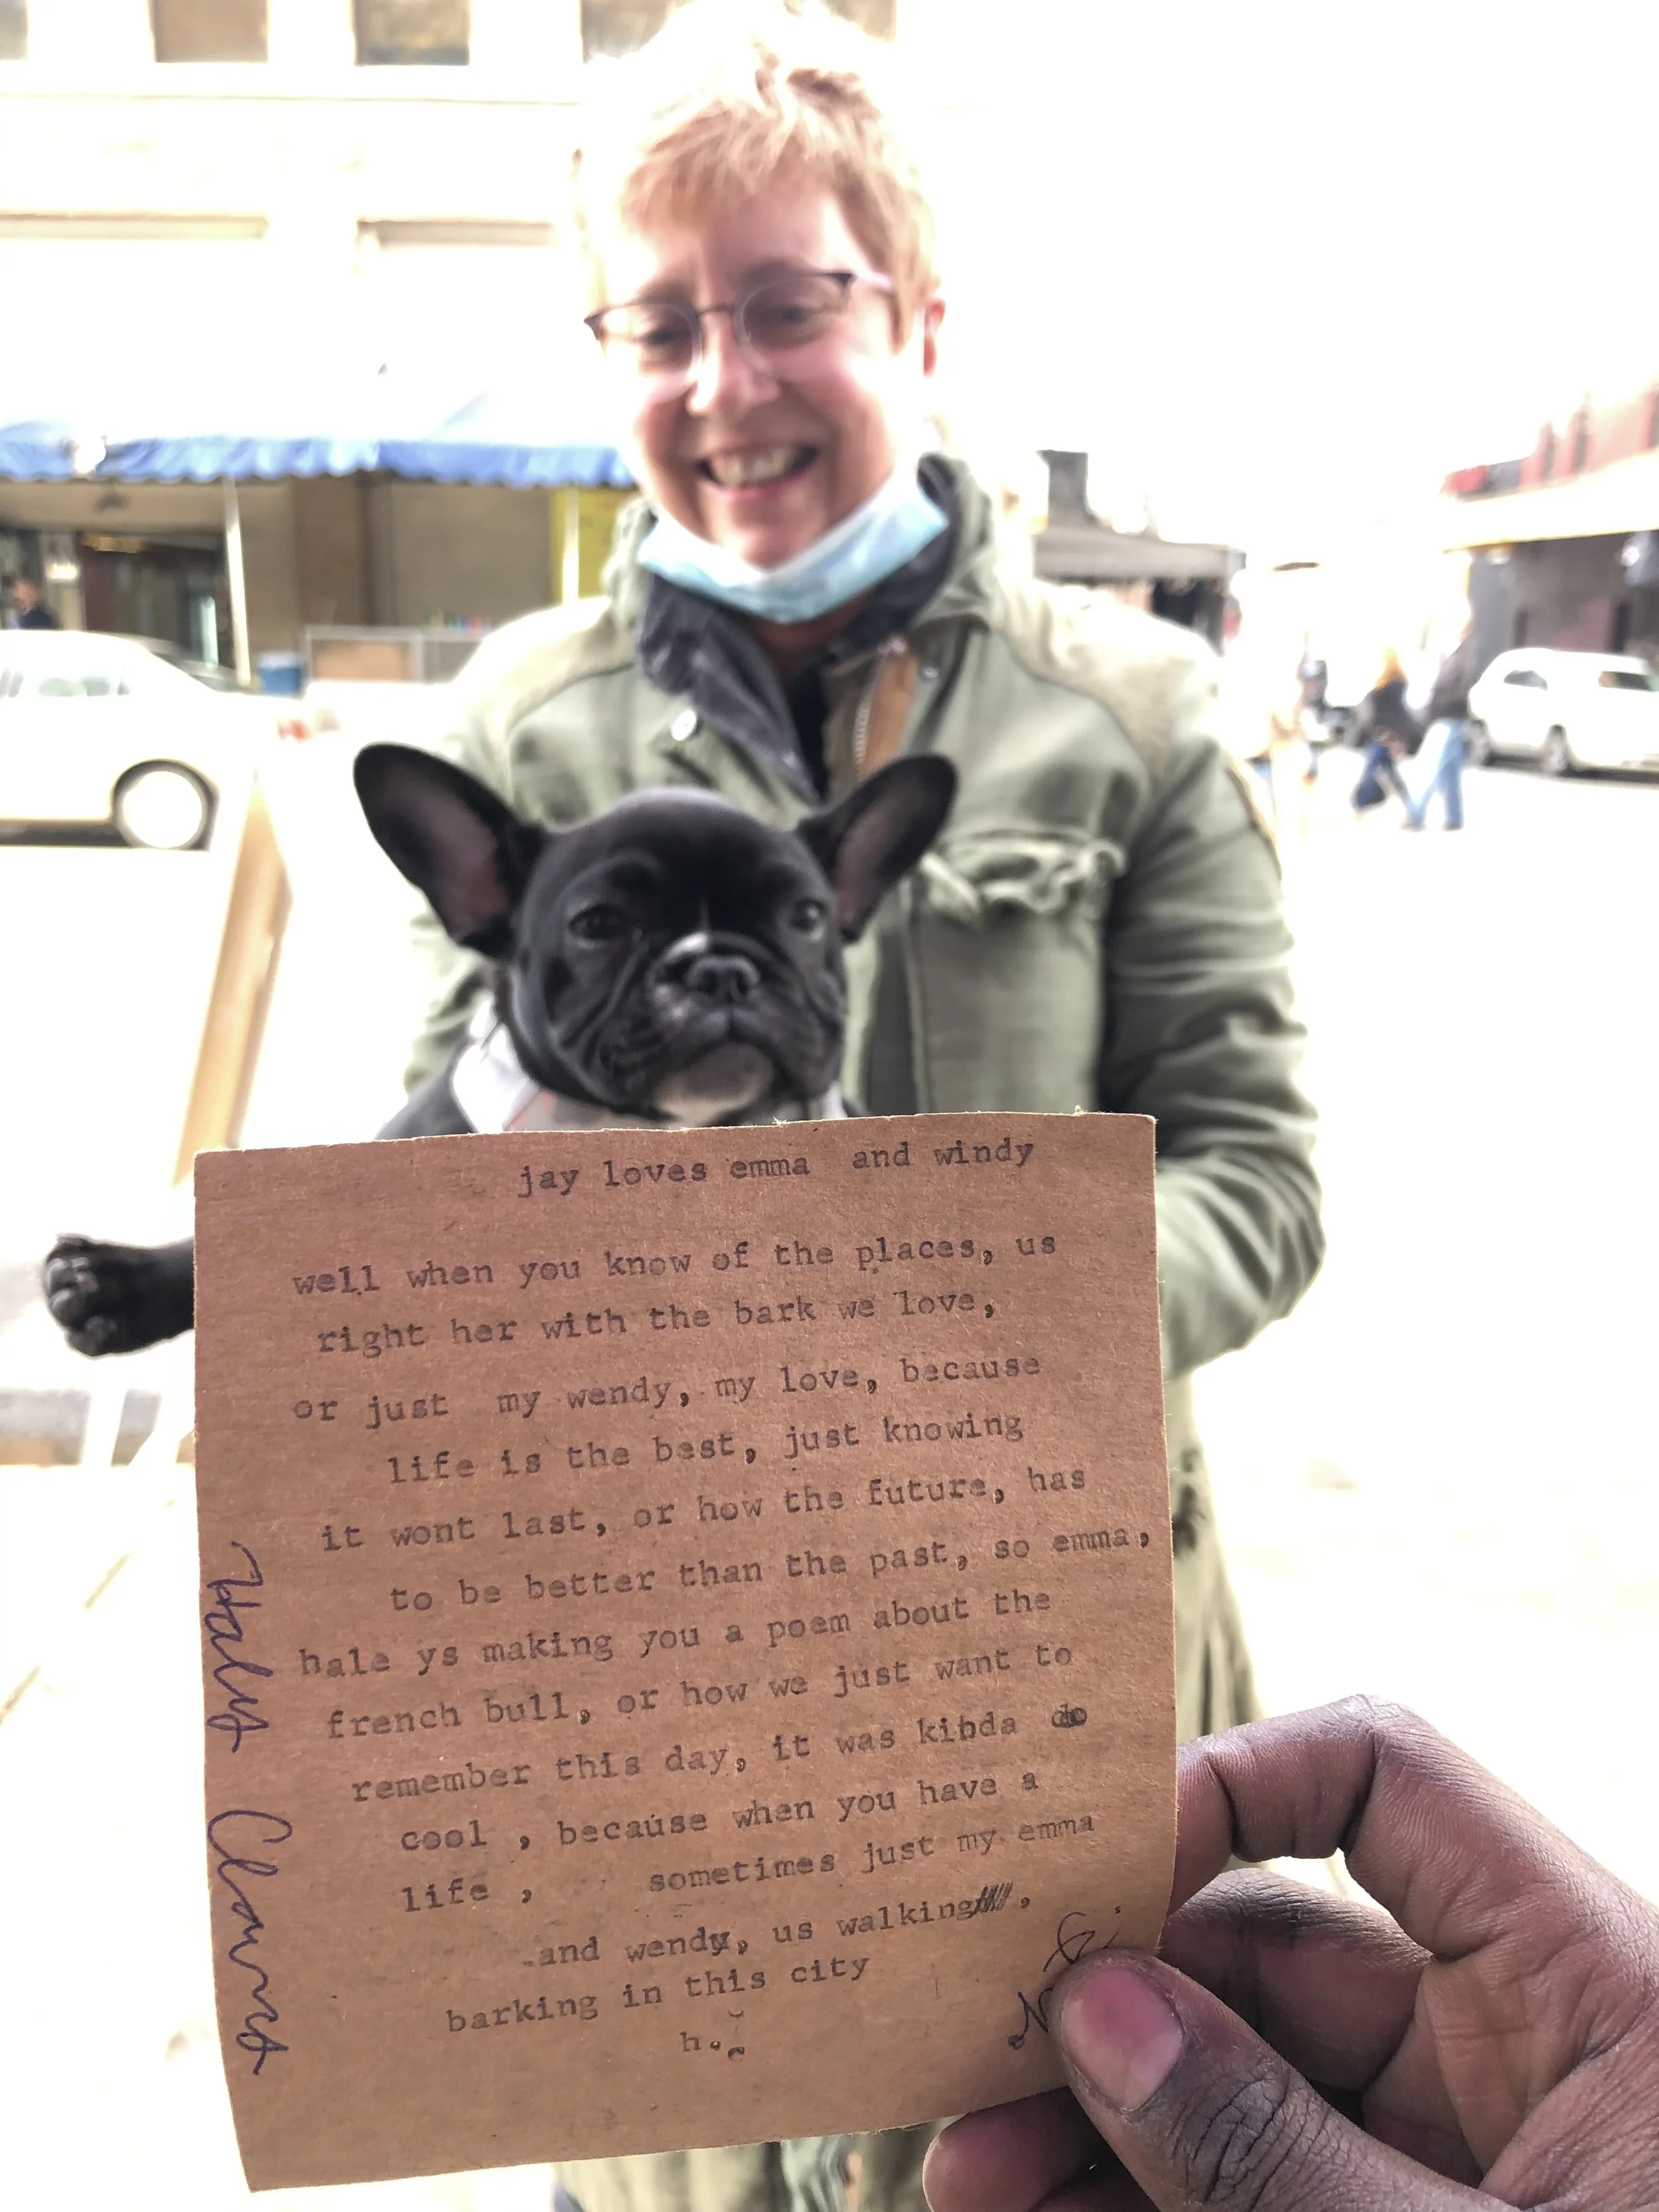 jay loves emma and windy
well when you know of the places, us
right her with the bark we love,
or just my wendy, my love, because
life is the best, just knowing
it wont last, or how the future, has
to be better than the past, so emma,
hale ys making you a poem about the
french bull, or how we just want to
remember this day, it was kinda do
cool , because when you have a
life , sometimes just my emma
and wendy, us walking ,
barking in this city
h.